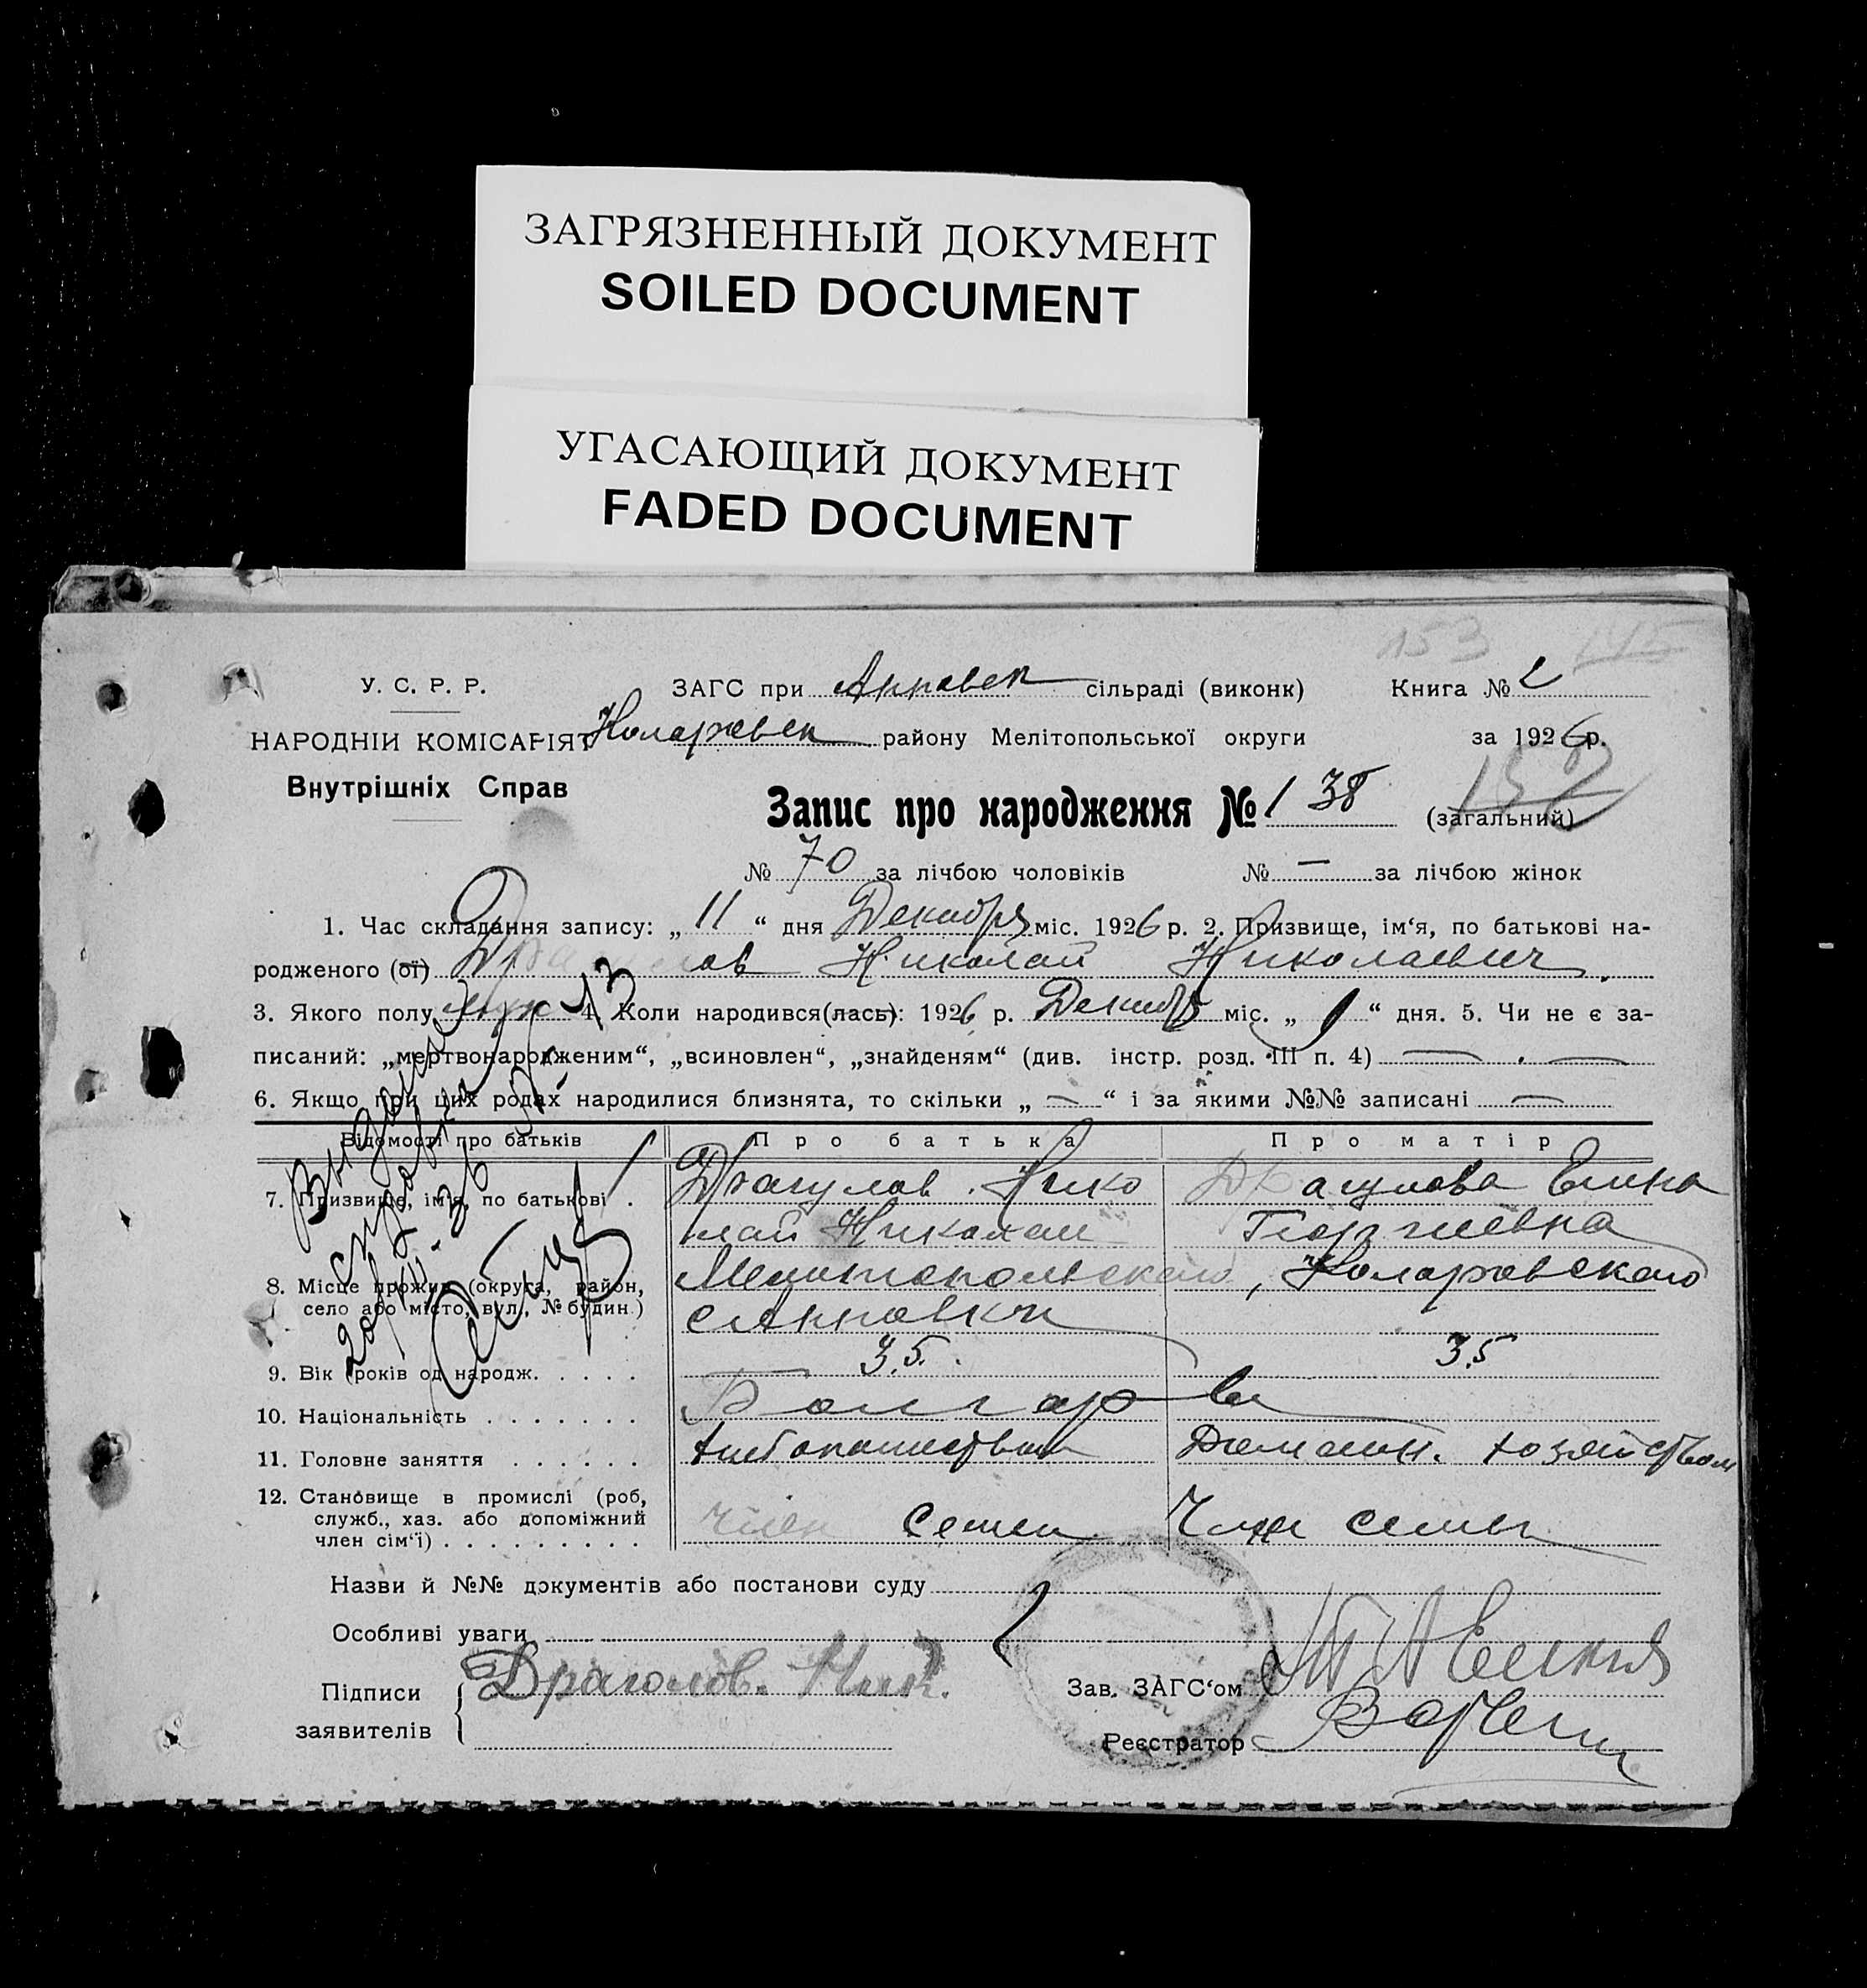 ЗАГРЯЗНЕННЫЙ ДОКУМЕНТ
SOILED DOCUMENT
УГАСАЮЩИЙ ДОКУМЕНТ
FADED DOCUMENT
153 145
У. С. Р. Р. ЗАГС при Анновск сільраді (виконк) Книга № 2
НАРОДНІИ КОМІСАРІЯТ Коларовск району Мелітопольської округи за 1926 р.
Внутрішніх Справ
Запис про народження № 138 (загальний) 152
№ 70 за лічбою чоловіків № — за лічбою жінок
1. Час складання запису: „ 11 “ дня Декабря міс. 1926 р. 2. Призвище, ім‘я, по батькові на-
родженого (ої) Драгулов Николай Николаевич
3. Якого полу муж 4. Коли народився(лась): 1926 р. Декабр міс. „ 1 “ дня. 5. Чи не є за-
писаний: „мертвонародженим“, „всиновлен“, „знайденям“ (див. інстр. розд. III п. 4) — . —
6. Якщо при цих родах народилися близнята, то скільки „ — “ і за якими №№ записані —
Відомості про батьків Про батька Про матір
7. Призвище, ім‘я, по батькові . Драгулов Нико Драгулова Елена
лай Николаи Георгиевна
8. Місце прожив. (округа, район, Мелитопольского, Коларовского
село або місто, вул., № будин.) с Анновки
9. Вік (років од народж. . . . . . 35. 35
10. Національність . . . . . . . Болгары
11. Головне заняття . . . . . . хлебопашеством Домашн. хозяйством
12. Становище в промислі (роб,
служб., хаз. або допоміжний член семьи Член семьи
член сім‘ї) . . . . . . . . .
Назви й №№ документів або постанови суду
Особливі уваги
Підписи Драголов. Ник.
заявителів
Зав. ЗАГС‘ом
Реєстратор
Выдана
справка